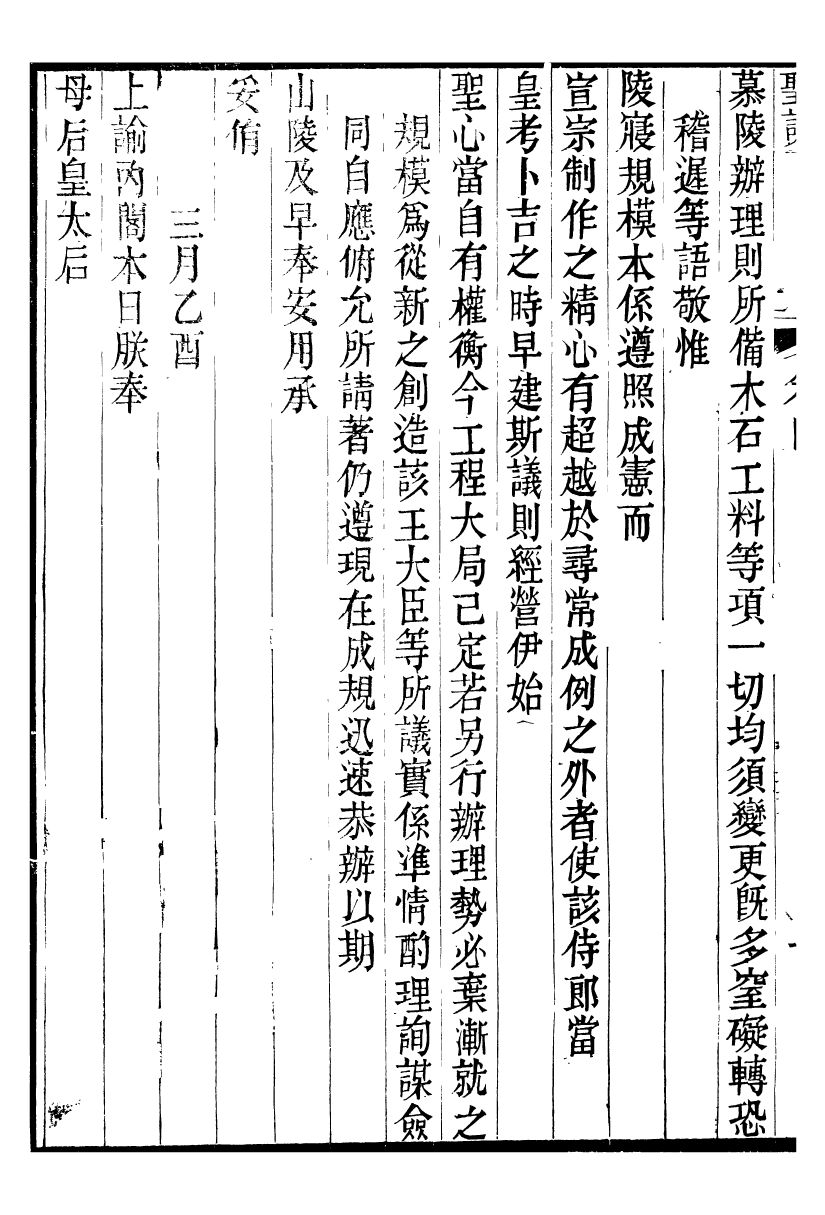 慕陵辦理則所備木石工料等項一切均須變更旣多窒礙轉恐
稽遲等語敬惟
陵寢規模本係遵照成憲而
宣宗制作之精心有超越於尋常成例之外者使該侍郎當
皇考卜吉之時早建斯議則經營伊始
聖心當自有權衡今工程大局已定若另行辦理勢必棄漸就之
規模爲從新之創造該王大臣等所議實係準情酌理詢謀僉
同自應俯允所請著仍遵現在成規迅速恭辦以期
山陵及早奉安用承
妥侑
三月乙酉
上諭內閣本日朕奉
母后皇太后